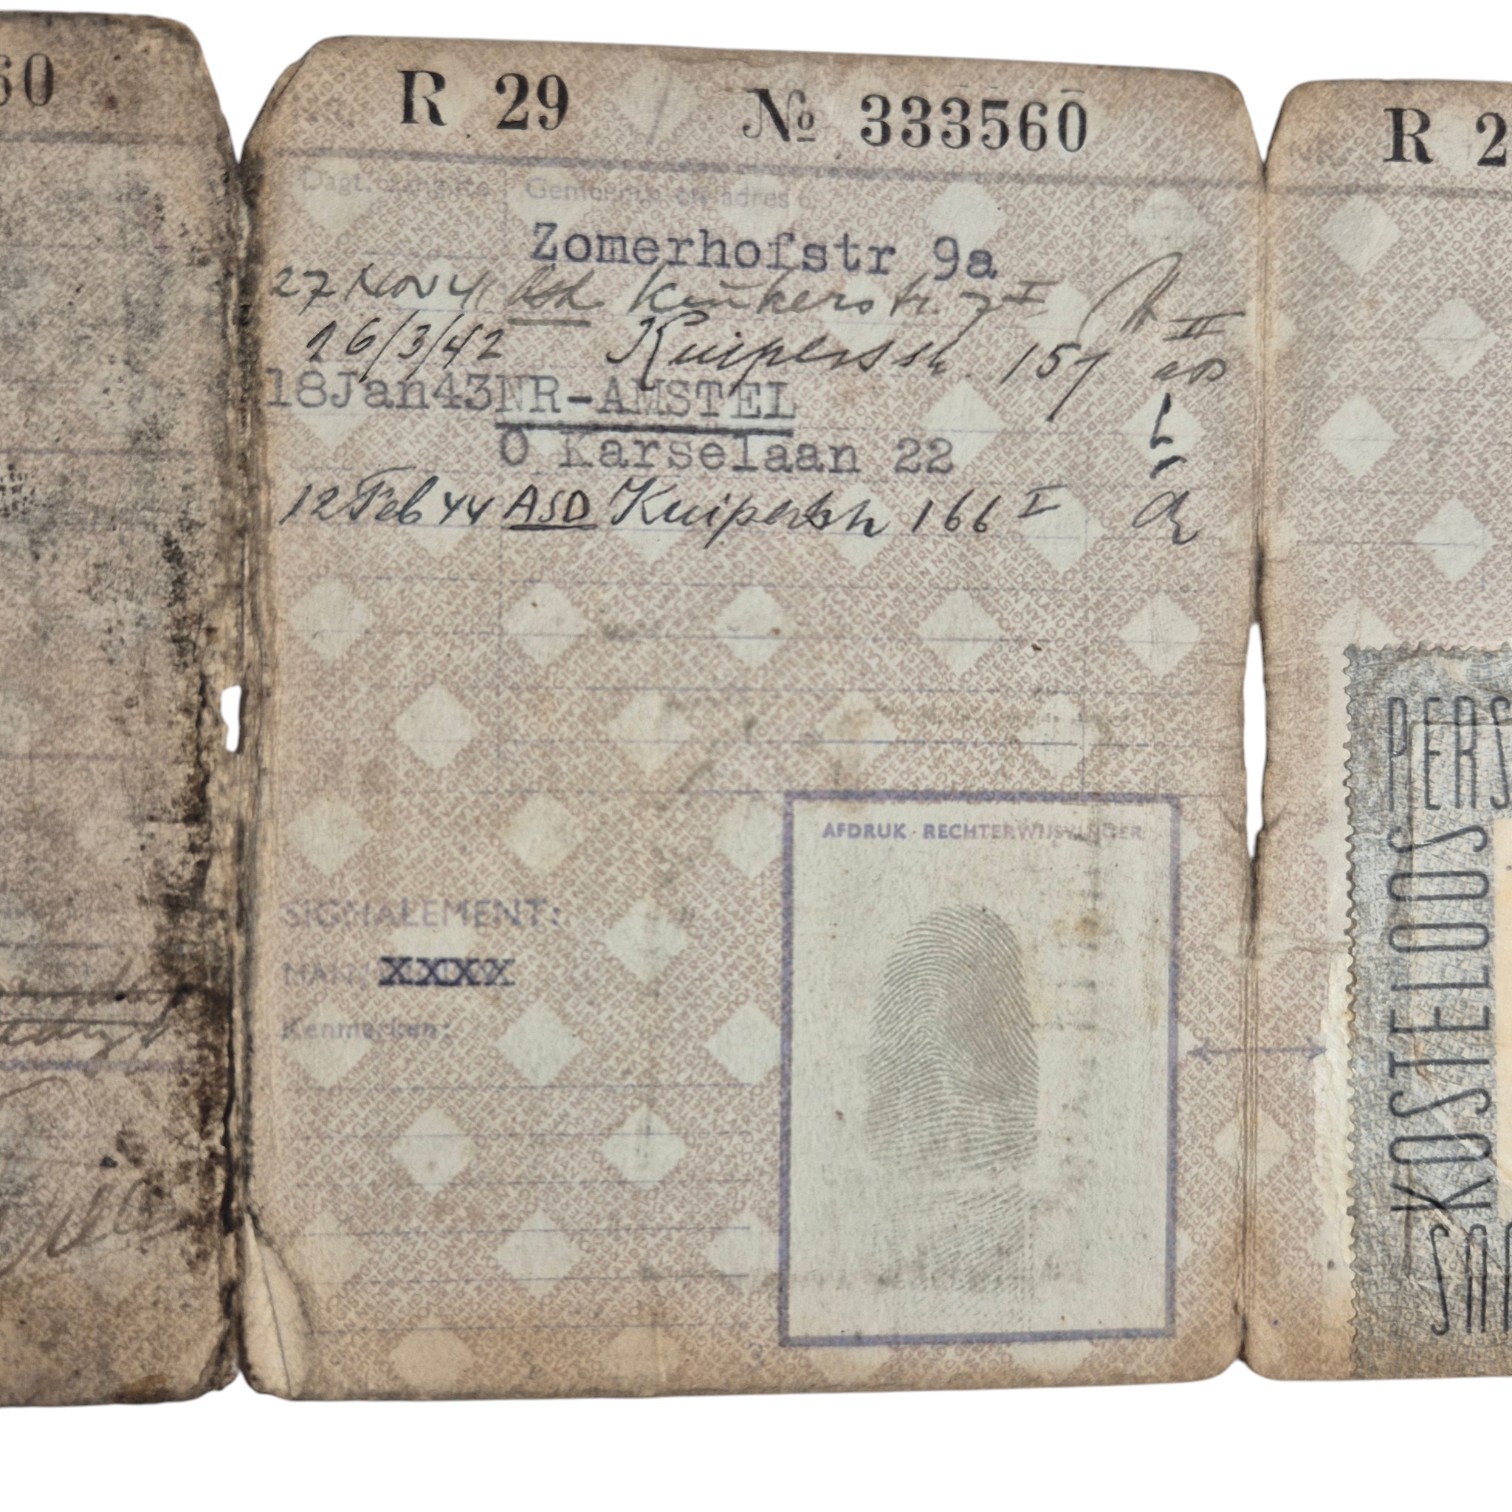 60
R 29 № 333560
Gemeente en adres
Zomerhofstr 9a
27 Nov 41 Asd Kinkerstr. 7 I
26/3/42 Kuipersstr. 157 II
18Jan43NR-AMSTEL
O Karselaan 22
12 Feb 44 ASD Kuipersstr 166 I
AFDRUK RECHTERWIJSVINGER
SIGNALEMENT:
XXXX
Kenmerken:
R 2
PERS
KOSTELOOS